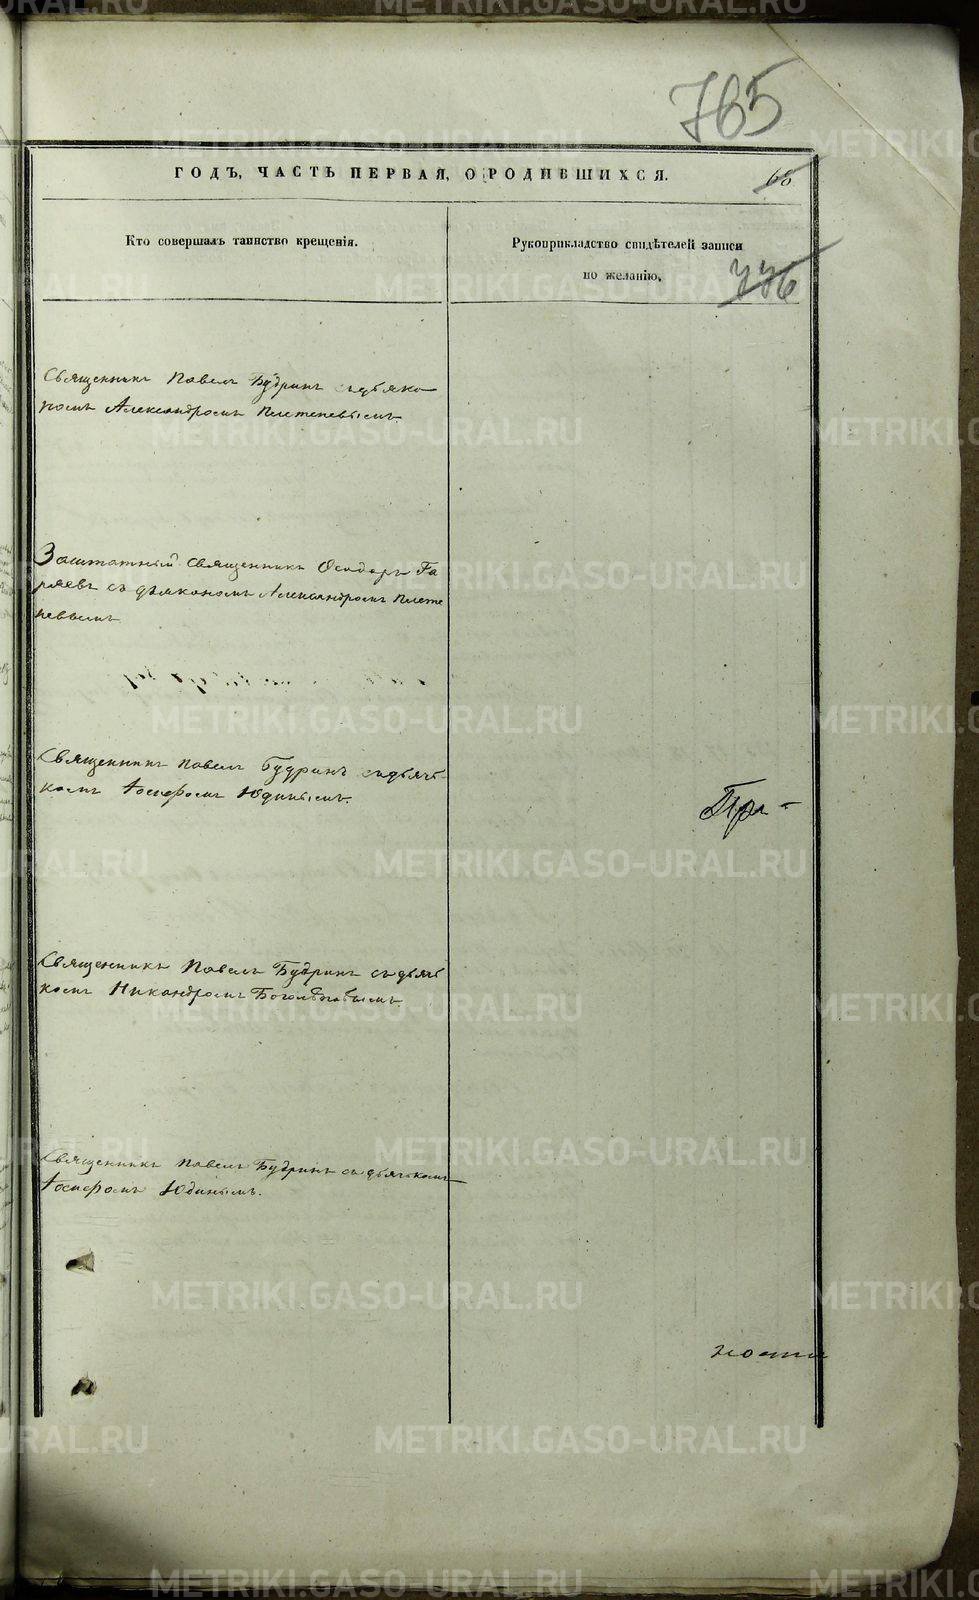 765
ГОДЪ, ЧАСТЬ ПЕРВАЯ, О РОДИВШИХСЯ.
68
Кто совершалъ таинство крещенія.
Рукоприкладство свидѣтелей записи
по желанію.
776
Священникъ Павелъ Будринъ съ дьяко-
номъ Александромъ Плетеневымъ.
Заштатный священникъ Феодоръ Га
ряевъ съ дьякономъ Александромъ Плете
невымъ
Священникъ Павелъ Будринъ съ дьяч
комъ Іосифомъ Юдинымъ.
При-
Священникъ Павелъ Будринъ съ дьяч
комъ Никандромъ Боголѣповымъ
Священникъ Павелъ Будринъ съ дьячкомъ
Іосифомъ Юдинымъ.
METRIKI.GASO-URAL.RU